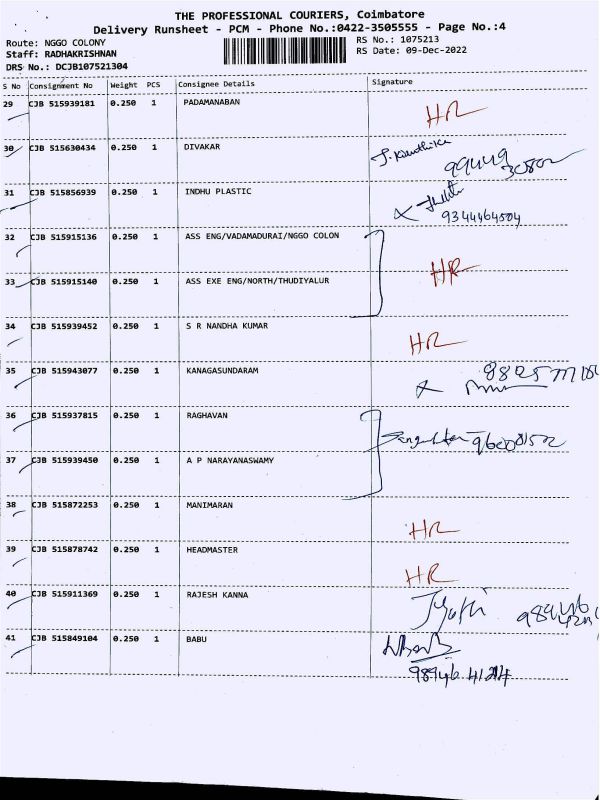 THE PROFESSIONAL COURIERS, Coimbatore
Delivery Runsheet - PCM - Phone No.:0422-3505555 - Page No.:4
Route: NGGO COLONY RS No.: 1075213
Staff: RADHAKRISHNAN RS Date: 09-Dec-2022
DRS No.: DCJB107521304
S No Consignment No Weight PCS Consignee Details Signature
29 CJB 515939181 0.250 1 PADAMANABAN HR
30 CJB 515630434 0.250 1 DIVAKAR
31 CJB 515856939 0.250 1 INDHU PLASTIC
9344464504
32 CJB 515915136 0.250 1 ASS ENG/VADAMADURAI/NGGO COLON
HR
33 CJB 515915140 0.250 1 ASS EXE ENG/NORTH/THUDIYALUR
34 CJB 515939452 0.250 1 S R NANDHA KUMAR HR
35 CJB 515943077 0.250 1 KANAGASUNDARAM
36 CJB 515937815 0.250 1 RAGHAVAN
37 CJB 515939450 0.250 1 A P NARAYANASWAMY
38 CJB 515872253 0.250 1 MANIMARAN HR
39 CJB 515878742 0.250 1 HEADMASTER HR
40 CJB 515911369 0.250 1 RAJESH KANNA
41 CJB 515849104 0.250 1 BABU